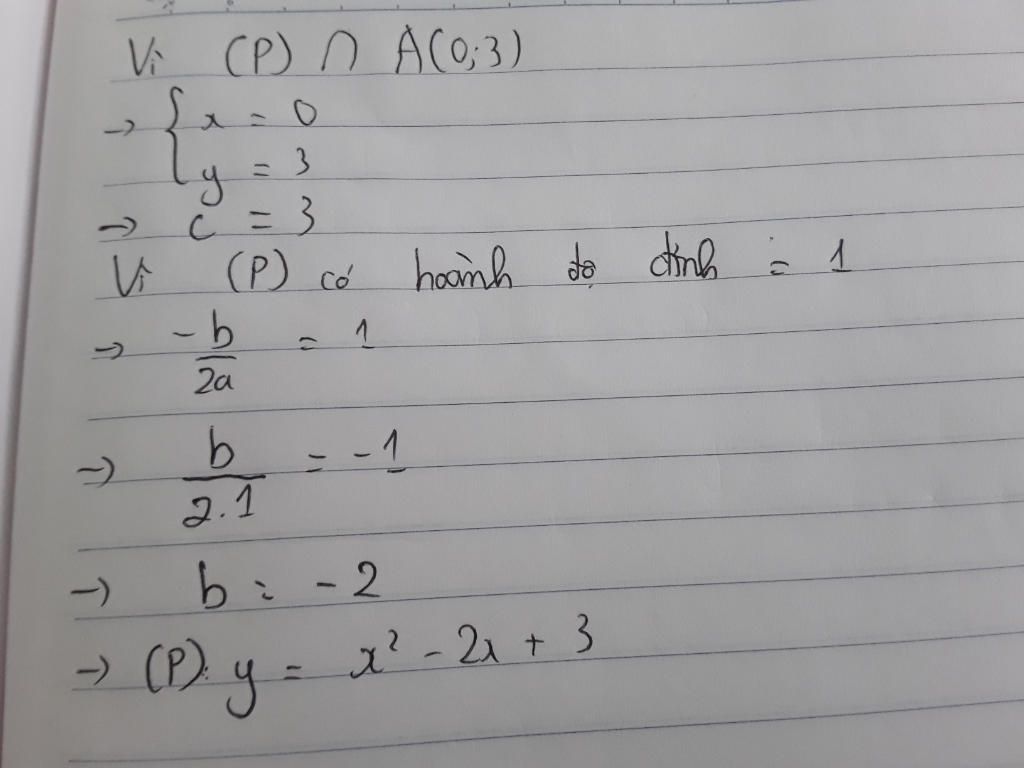 Vì (P) ∩ A(0;3)
→ { x = 0
y = 3
→ c = 3
Vì (P) có hoành độ đỉnh = 1
→ -b/2a = 1
→ b/2.1 = -1
→ b = -2
→ (P): y = x² - 2x + 3